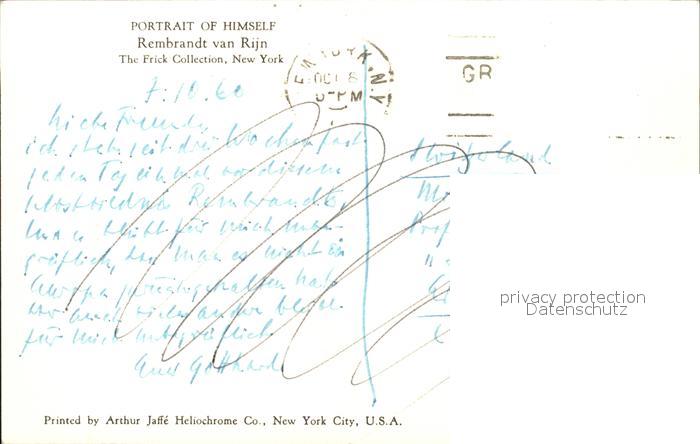 PORTRAIT OF HIMSELF
Rembrandt van Rijn
The Frick Collection, New York
OCT 8
PM
N.Y.
GR
7.10.60
Liebe Freunde,
ich stehe seit drei Wochen fast
jeden Tag einmal vor diesem
Selbstbildnis Rembrandts,
und es bleibt für mich unbe-
greiflich, dass man es nicht in
Europa zurückgehalten hat.
für mich unbegreiflich
Euer Gotthard
Switzerland
Prof
privacy protection
Datenschutz
Printed by Arthur Jaffé Heliochrome Co., New York City, U.S.A.